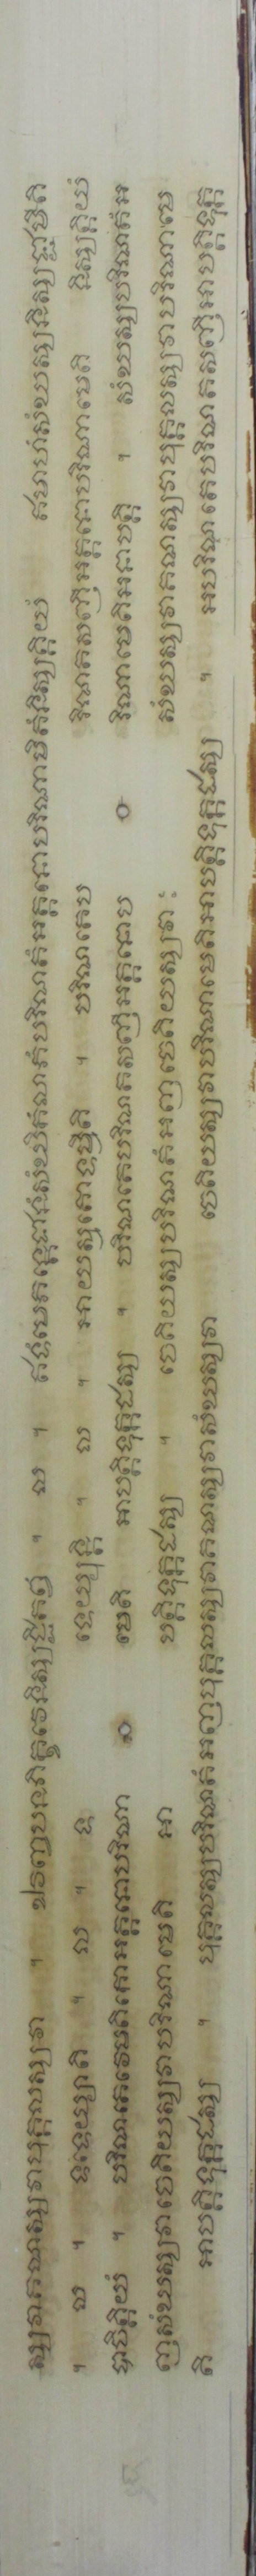 ស្សវាគណស្សវាបុគ្គលស្សវា ។ ឯវញ្ចបនភិក្ខវេនិស្សជ្ជិតព្វំ ។ ល ។ ឥទំមេភន្តេជានំសំឃិកំលាភំបរិណតំអត្តនោបរិណាមិតំនិស្សគ្គិយំ ឥមាហំសំឃស្សនិស្សជ្ជាមីតិ
។ ល ។ ទទេយ្យាតិ ។ ល ។ ទ ទេយ្យុន្តិ ។ ល ។ អាយស្មតោទម្មីតិ ។ បរិណតេប រិណតសញ្ញីអត្តនោបរិណាមេតិ និស្សគ្គិយំ
បាចិត្តិយំ ។ បរិណតេវេមតិកោអត្តនោបរិណា មេតិ អាបត្តិទុក្កដស្ស ។ បរិណតេអបរិណតសញ្ញីអត្តនោប រិណាមេតិអនាបត្តិ ។ សំឃស្សបរិណតំអ
ញ្ញសំឃស្សវាចេតិយស្សវាបរិណាមេតិ អា បត្តិទុក្កដស្ស ។ ចេតិយស្សបរិណតំអញ្ញចេតិយស្សវា សំឃស្សវាគណស្សវាបុគ្គលស្សវាបរិណាមេ
តិ អាបត្តិទុក្កដស្ស ។ បុគ្គលស្សបរិណតំអញ្ញបុគ្គលស្សវាគណស្សវាសំឃស្សវា ចេតិយស្សវាបរិណាមេតិអាបត្តិទុក្កដស្ស ។ អបរិណតេបរិណតសញ្ញីអាបត្តិទុក្ក